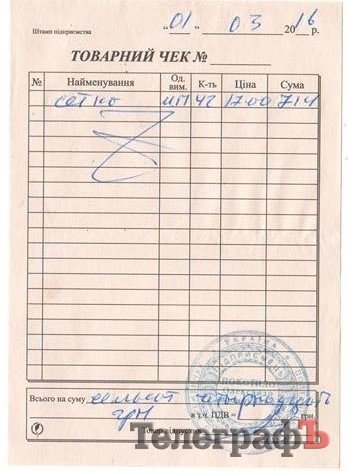 Штамп підприємства "01" 03 2016 р.
ТОВАРНИЙ ЧЕК №
№ Найменування Од. вим. К-ть Ціна Сума
сетка мп 42 17.00 714
Всього на суму семьсот четырнадцать
грн в т.ч. ПДВ = грн
Товар відпустив
УКРАЇНА
ТелеграфЪ